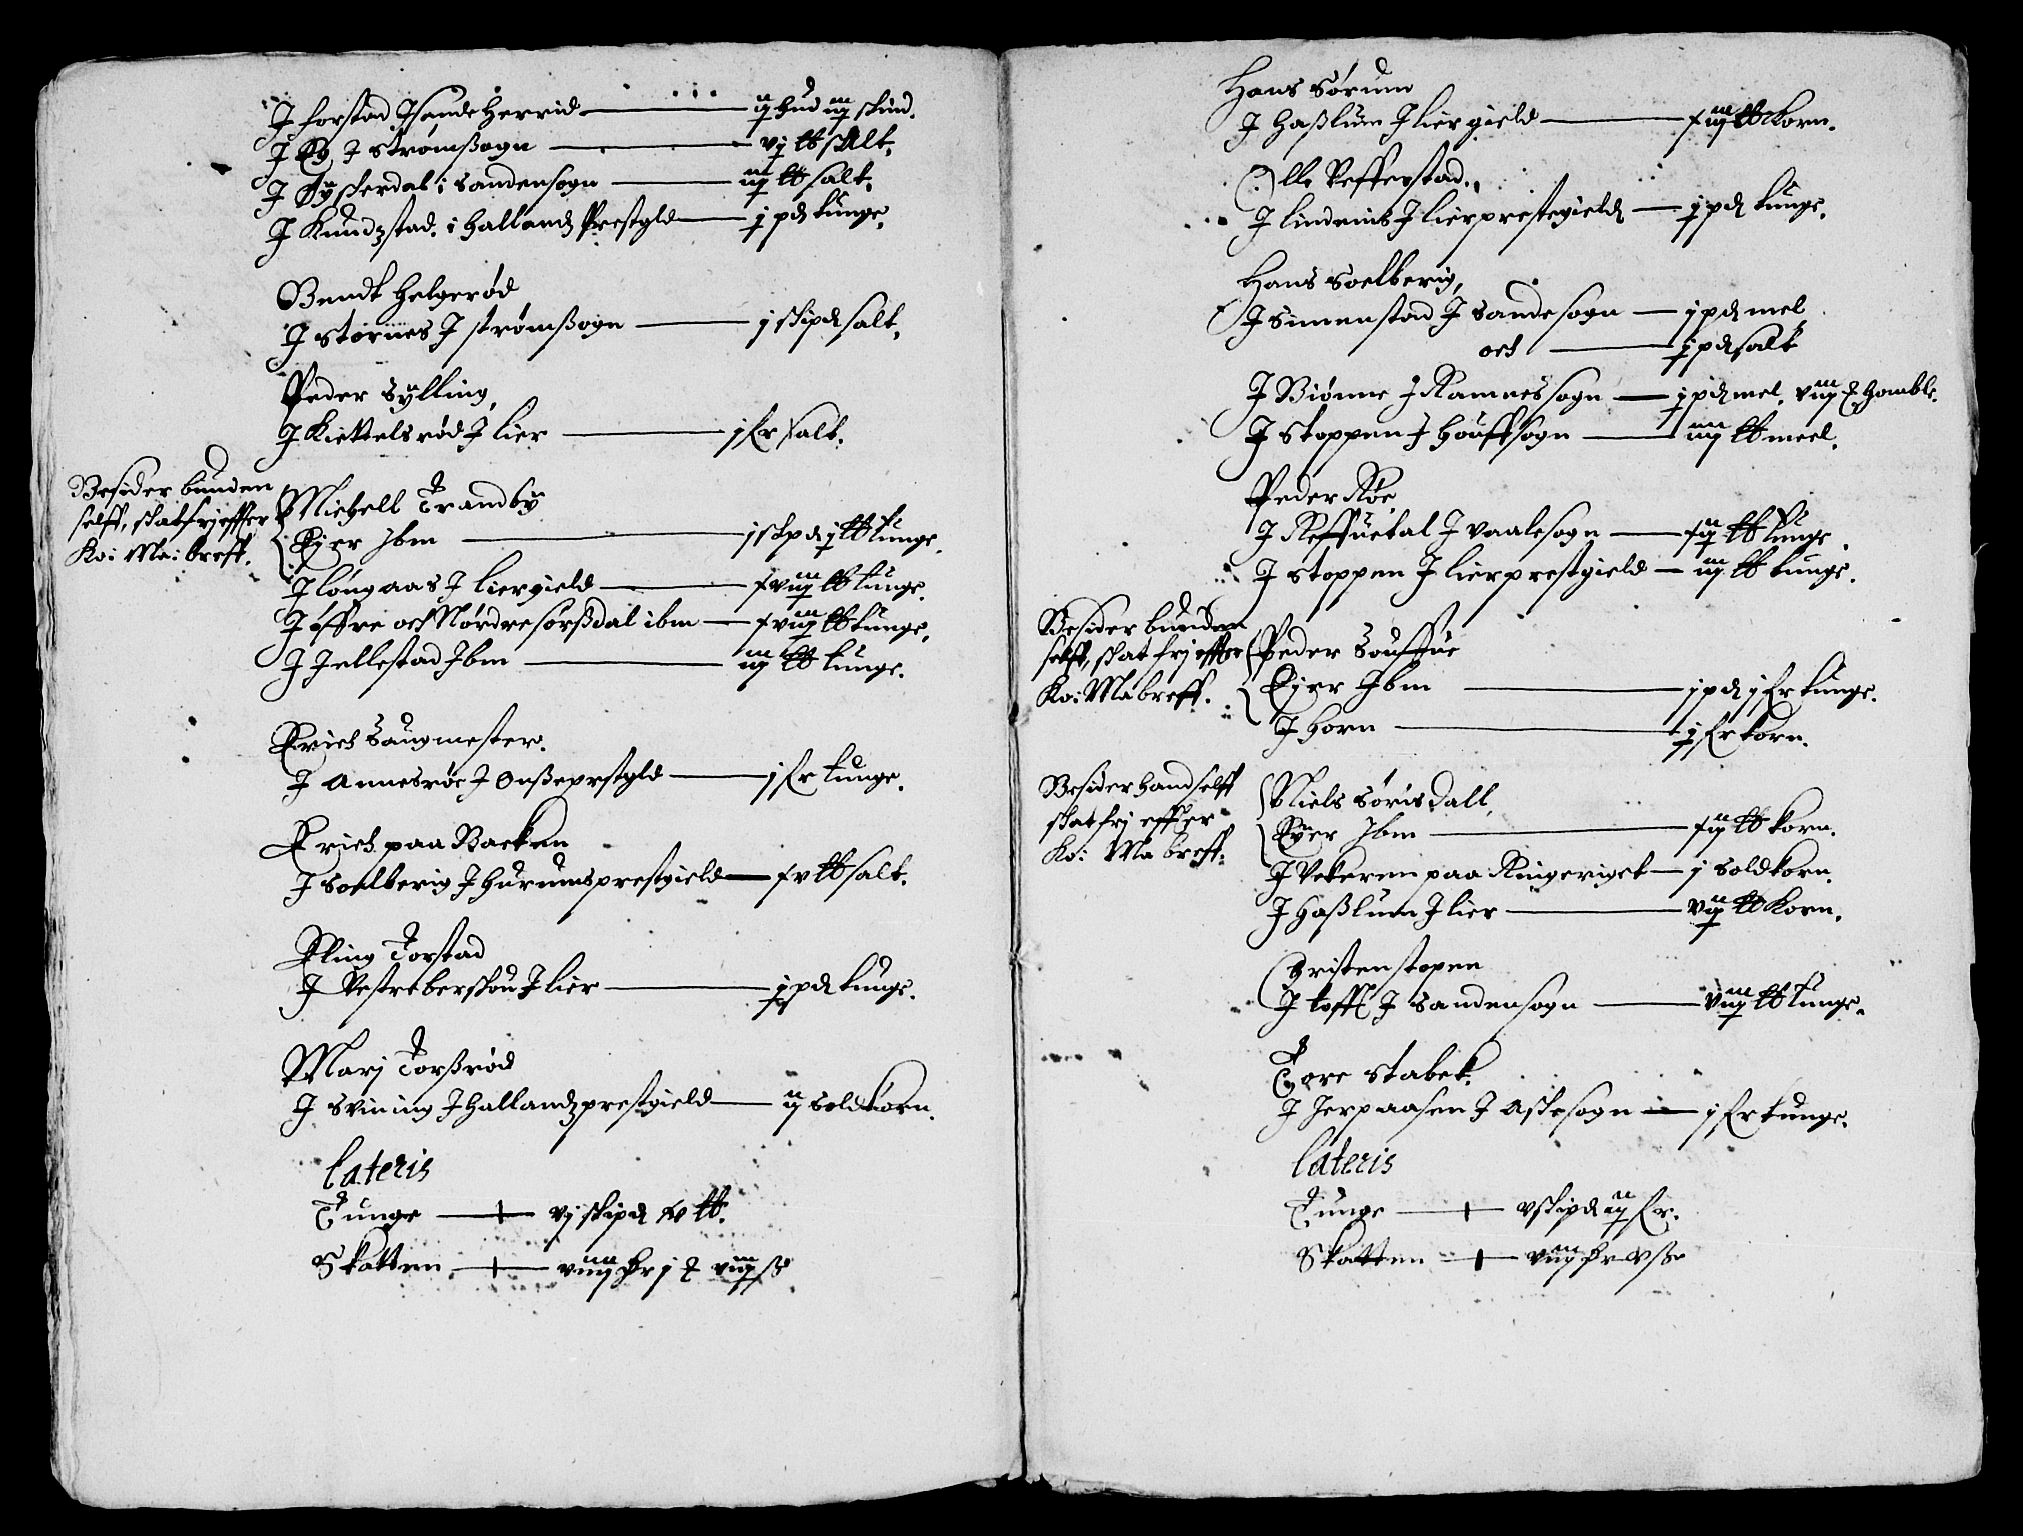 J forstad J Sande Herrid — ij hud iij skind.
J By J Strømßogn — vj tb salt.
J Fyskerdal i Sandensogn — iij tb salt.
J Kundzstad i Hallandz Prestgld — j pd tunge.
Bendt Helgerød
J Størnes J strømßogn — j skipd salt.
Peder Sylling,
J Kiettelsrød J lier — j fr salt.
Besider bunden
selff, skatfrj effter
Ko: Ma: breff.
Michell Trandby
Ejer Jbm — j skpd j tb tunge.
J Longaas J liergield — xviij tb tunge.
J øffre och Nørdre sørßdal ibm — xviij tb tunge.
J Jellestad Jbm — iij tb tunge.
Erich Saugmester.
J Annesrøe J Onßøe prstgld — j fr tunge.
Erich paa Backen
J Soelberig J Hurums prestgield — xv tb salt.
Eling Torstad
J Vestre berskou J lier — j pd tunge.
Marj Torßrød
J Svining J Hallandz prestgield — ij sold korn.
Lateris
Tunge — vj skipd xv tb.
Skatten — viiij dr j t viij ß
Hans Sørum
J Haßlum J lier gield — xiij tb korn.
Olle Reffverstad.
J lindenis J lier prestegield — j pd tunge.
Hans Soelberig,
J Simenstad J Sandesogn — j pd mel
och — j pd salt
J Biønne J Ramnes sogn — j pd mel. viij t homble.
J Stoppen J Houffsogn — iiij tb meel.
Peder Røe,
J Reffuetal J vaalesogn — xij tb tunge.
J Stoppen J lier prestgield — iij tb tunge.
Besider bunden
selff, skatfrj effter
Ko: Ma breff.
Peder Souffue
Ejer Jbm — j pd j fr tunge.
J Horn — j fr korn.
Besider hand selff
skatfrj effter
Ko: Ma breff.
Niels Sørisdall,
Eyer Jbm — xij tb korn.
J Vekeren paa Ringeriget — j sold korn.
J Haßlum J lier — vij tb korn.
Christen stopen
J toffte J Sandensogn — viij tb tunge.
Tore Stabek.
J Jerpaasen J Askesogn — j fr tunge.
Lateris
Tunge — v skipd ij fr.
Skatten — viij dr v ß